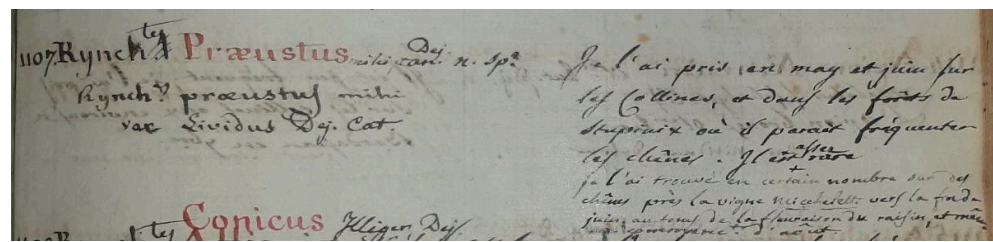 1107. Rynch.tes Præustus mihi Dej. n. sp.
Rynch.s præustus mihi
var Lividus Dej. Cat.
Je l'ai pris en may et juin sur
les Collines, et dans les forêts de
Stupinix où il parait fréquenter
les chênes. Il est assez rare
je l'ai trouvé en certain nombre sur des
chênes près la vigne vers la fin de
juin au tems de la fleuraison du raisin, et même
d'août.
tes Conicus Illiger. Dej.